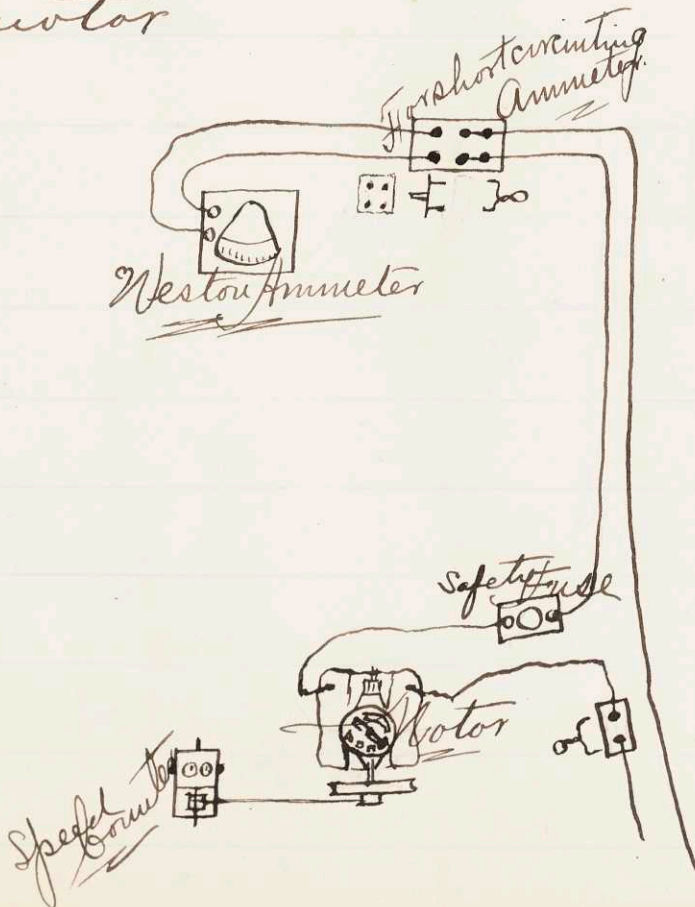 For shortcircuiting
Ammeter.
Weston Ammeter
Safety Fuse
Motor
Speed
Counter